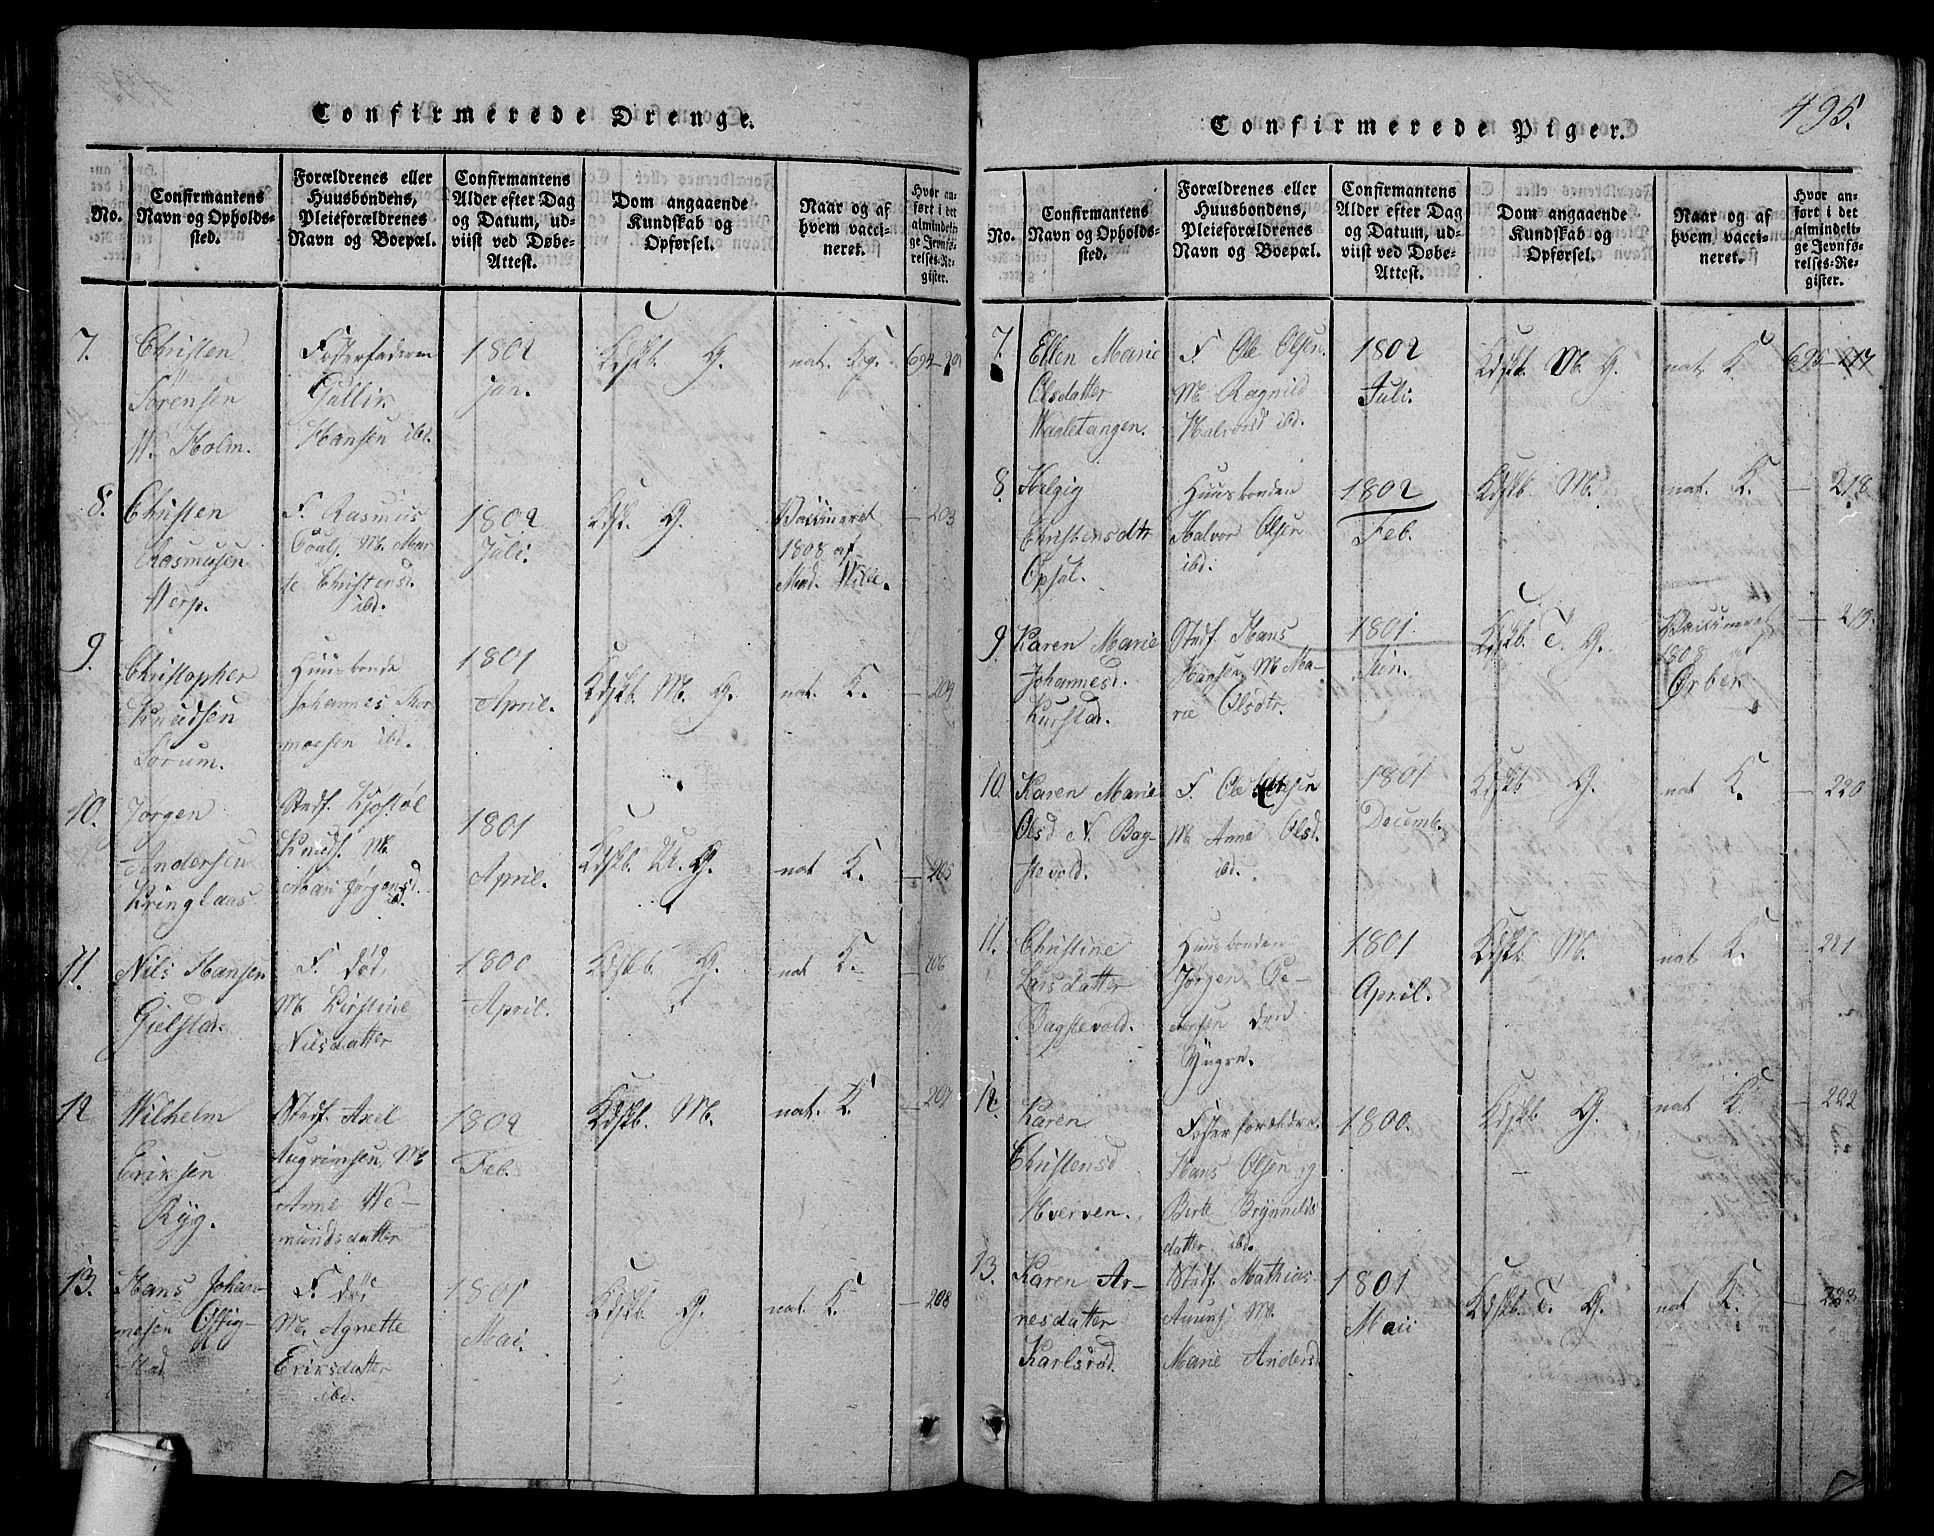 Confirmerede Drenge.
No.
Confirmantens
Navn og Opholds-
sted.
Forældrenes eller
Huusbondens,
Pleieforældrenes
Navn og Boepæl.
Confirmantens
Alder efter Dag
og Datum, ud-
viist ved Døbe-
Attest.
Dom angaaende
Kundskab og
Opførsel.
Naar og af
hvem vacci-
neret.
Hvor an-
ført i det
almindeli-
ge Jevnfø-
relses-Re-
gister.
7.
Christen
Sörensen
W. Holm.
Fosterfaderen
Gullik
Hansen ibd.
1802
Jan.
Kdskb. G.
nat. K.
694 - 201
8.
Christen
Rasmusen
Werp.
F. Rasmus
M. Mar-
te Christensd.
ibd.
1802
Juli.
Kdsk. G.
Vaccineret
1808 af
Mad. Wille.
— 203
9.
Christopher
Knudsen
Sörum.
Huusbonde
Johannes Thor-
moesen ibd.
1801
April.
Kdskb. M. G.
nat. K.
— 204
10.
Jörgen
Andersen
Kringlaas
Stedf. Kjostöl
Knuds. M.
Mari Jörgensd.
ibd.
1801
April.
Kdskb. M. G.
nat. K.
— 205
11.
Nils Hansen
Gjelstad.
F. död,
M. Kirstine
Nilsdatter
1800
April.
Kdskb. G.
nat K.
— 206
12
Wilhelm
Eriksen
Ryg.
Stedf. Axel
Augrimsen, M
Anne We-
mundsdatter
1802
Feb.
Kdskb. M.
nat. K.
— 207
13.
Hans Johan-
nesen Östig-
stad
F. död
M. Agnette
Eriksdatter
ibd.
1801
Mai.
Kdskb. G.
nat. K.
— 208
495.
Confirmerede Piger.
No.
Confirmantens
Navn og Opholds-
sted.
Forældrenes eller
Huusbondens,
Pleieforældrenes
Navn og Boepæl.
Confirmantens
Alder efter Dag
og Datum, ud-
viist ved Døbe-
Attest.
Dom angaaende
Kundskab og
Opførsel.
Naar og af
hvem vacci-
neret.
Hvor an-
ført i det
almindeli-
ge Jevnfø-
relses-Re-
gister.
7.
Ellen Marie
Olsdatter
Waaletangen.
F. Ole Olsen.
M. Ragnild
Halvorsd ibd.
1802
Juli.
Kdskb. M. G.
nat. K.
695 - 217
8.
Helgig
Christensdtr
Opsal.
Huusbonden
Halvor Olsen
ibd.
1802
Feb.
Kdskb. M.
nat. K.
— 218
9.
Karen Marie
Johannesd.
Kurstad.
Stedf. Hans
Hansen, M. Ma-
rie Olsdtr.
1801.
Jun.
Kdskb. T. G.
Vaccineret
1808
Örbek
— 219.
10.
Karen Marie
Olsd N. Bag-
stevold.
F. Ole
M. Anne Olsd.
ibd.
1801
Decemb.
Kdskb G.
nat K.
— 220
11.
Christine
Larsdatter
Bagstevold.
Huusbonden
Jörgen Pe-
dersen den
Yngre.
1801
April.
Kdskb. M.
nat. K.
221
12.
Karen
Christensd
Hverven.
Fosterforældre.
Hans Olsen og
Birte Brynnilds
datter ibd.
1800.
Kdskb G.
nat K.
— 222
13.
Karen Ar-
nesdatter
Karlsröd.
Stedf. Mathias
M.
Marie Andersd
1801
Maii
Kdskb. T. G.
nat K.
— 223.